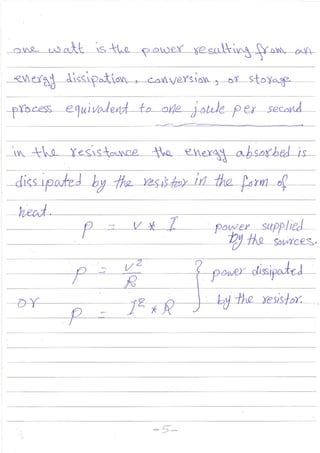 one watt is the power resulting from an
energy dissipation, conversion, or storage
process equivalent to one joule per second
in the resistance the energy absorbed is
dissipated by the resistor in the form of
heat.
P = V * I power supplied
by the sources.
P = V²/R } power dissipated
or P = I² * R by the resistor.
-5-